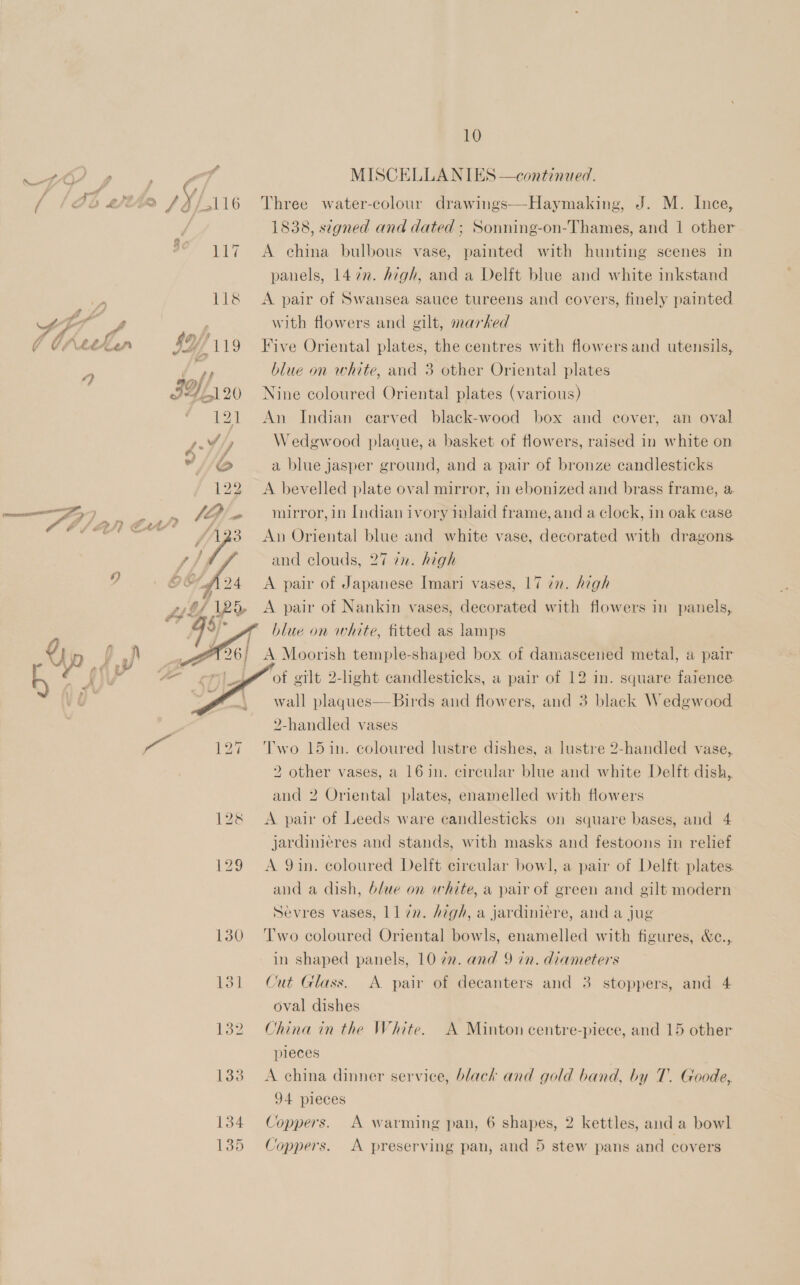 10
MISCELLANIES—continued.
116 Three water-colour drawings—Haymaking, J. M. Ince,
1838, signed and dated; Sonning-on-Thames, and 1 other
117 A china bulbous vase, painted with hunting scenes in
panels, 14 in. high, and a Delft blue and white inkstand
118 A pair of Swansea sauce tureens and covers, finely painted
with flowers and gilt, marked
119 Five Oriental plates, the centres with flowers and utensils,
blue on white, and 3 other Oriental plates
120 Nine coloured Oriental plates (various)
121 An Indian carved black-wood box and cover, an oval
Wedgwood plaque, a basket of flowers, raised in white on
a blue jasper ground, and a pair of bronze candlesticks
122 A bevelled plate oval mirror, in ebonized and brass frame, a
mirror, in Indian ivory inlaid frame, and a clock, in oak case
123 An Oriental blue and white vase, decorated with dragons
and clouds, 27 in. high
124 A pair of Japanese Imari vases, 17 in. high
125 A pair of Nankin vases, decorated with flowers in panels,
blue on white, fitted as lamps
126 A Moorish temple-shaped box of damascened metal, a pair
of gilt 2-light candlesticks, a pair of 12 in. square faience
wall plaques—Birds and flowers, and 3 black Wedgwood
2-handled vases
127 Two 15 in. coloured lustre dishes, a lustre 2-handled vase,
2 other vases, a 16 in. circular blue and white Delft dish,
and 2 Oriental plates, enamelled with flowers
128 A pair of Leeds ware candlesticks on square bases, and 4
jardinières and stands, with masks and festoons in relief
129 A 9 in. coloured Delft circular bowl, a pair of Delft plates
and a dish, blue on white, a pair of green and gilt modern
Sèvres vases, 11 in. high, a jardinière, and a jug
130 Two coloured Oriental bowls, enamelled with figures, &c.,
in shaped panels, 10 in. and 9 in. diameters
131 Cut Glass. A pair of decanters and 3 stoppers, and 4
oval dishes
132 China in the White. A Minton centre-piece, and 15 other
pieces
133 A china dinner service, black and gold band, by T. Goode,
94 pieces
134 Coppers. A warming pan, 6 shapes, 2 kettles, and a bowl
135 Coppers. A preserving pan, and 5 stew pans and covers